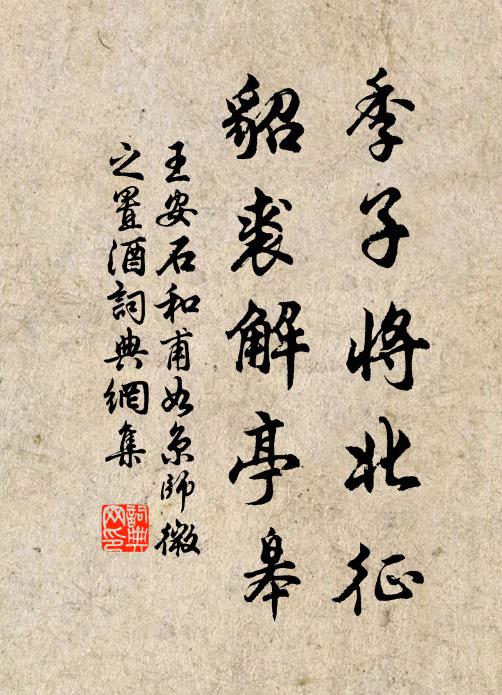 季子将北征
貂裘解亭皋
王安石和甫如京师微
之置酒词典網集
詞典
网印